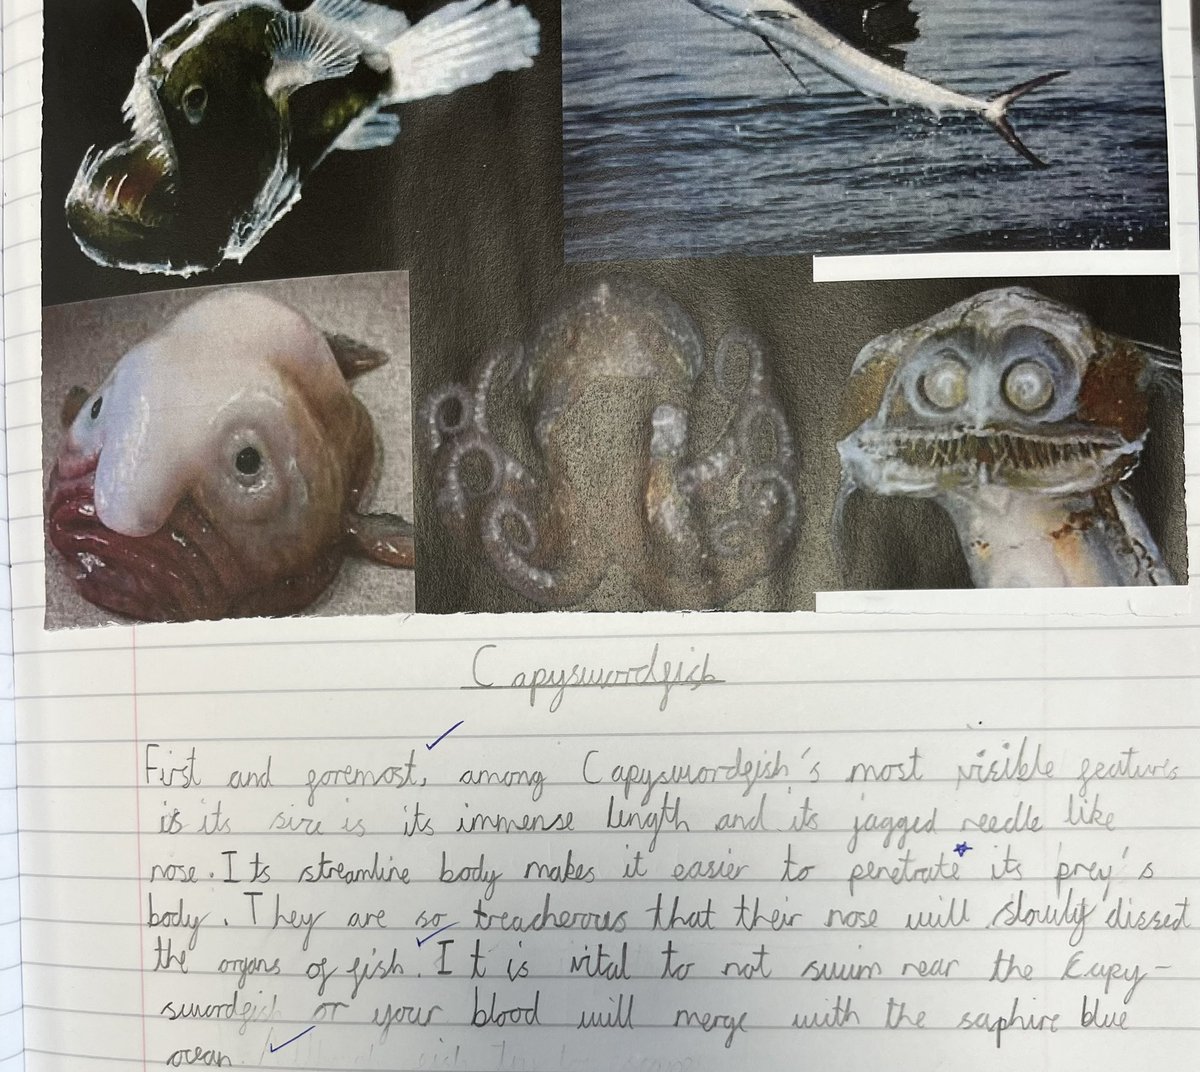 Capyswordfish
First and foremost, among Capyswordfish's most visible features
is its size is its immense length and its jagged needle like
nose. Its streamline body makes it easier to penetrate its prey's
body. They are so treacherous that their nose will slowly dissect
the organs of fish. It is vital to not swim near the Capy-
swordfish or your blood will merge with the saphire blue
ocean.